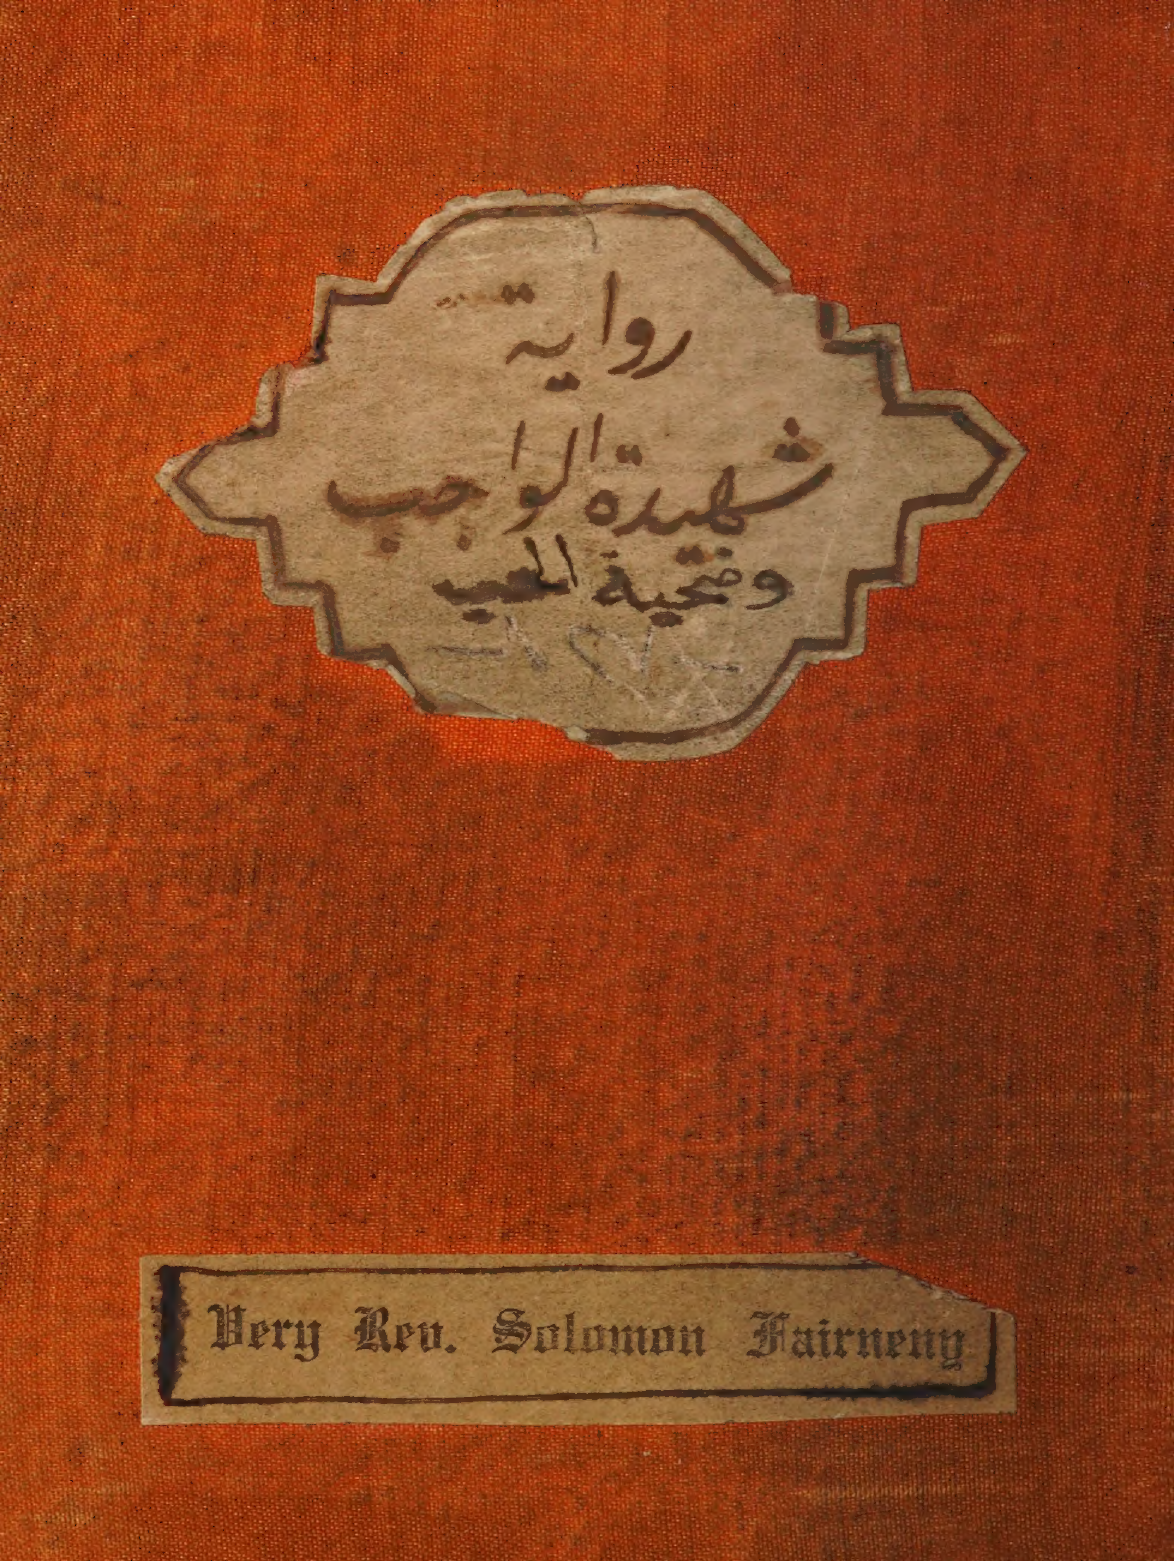 رواية
شهيدة الواجب
وضحية
Very Rev. Solomon Fairneny